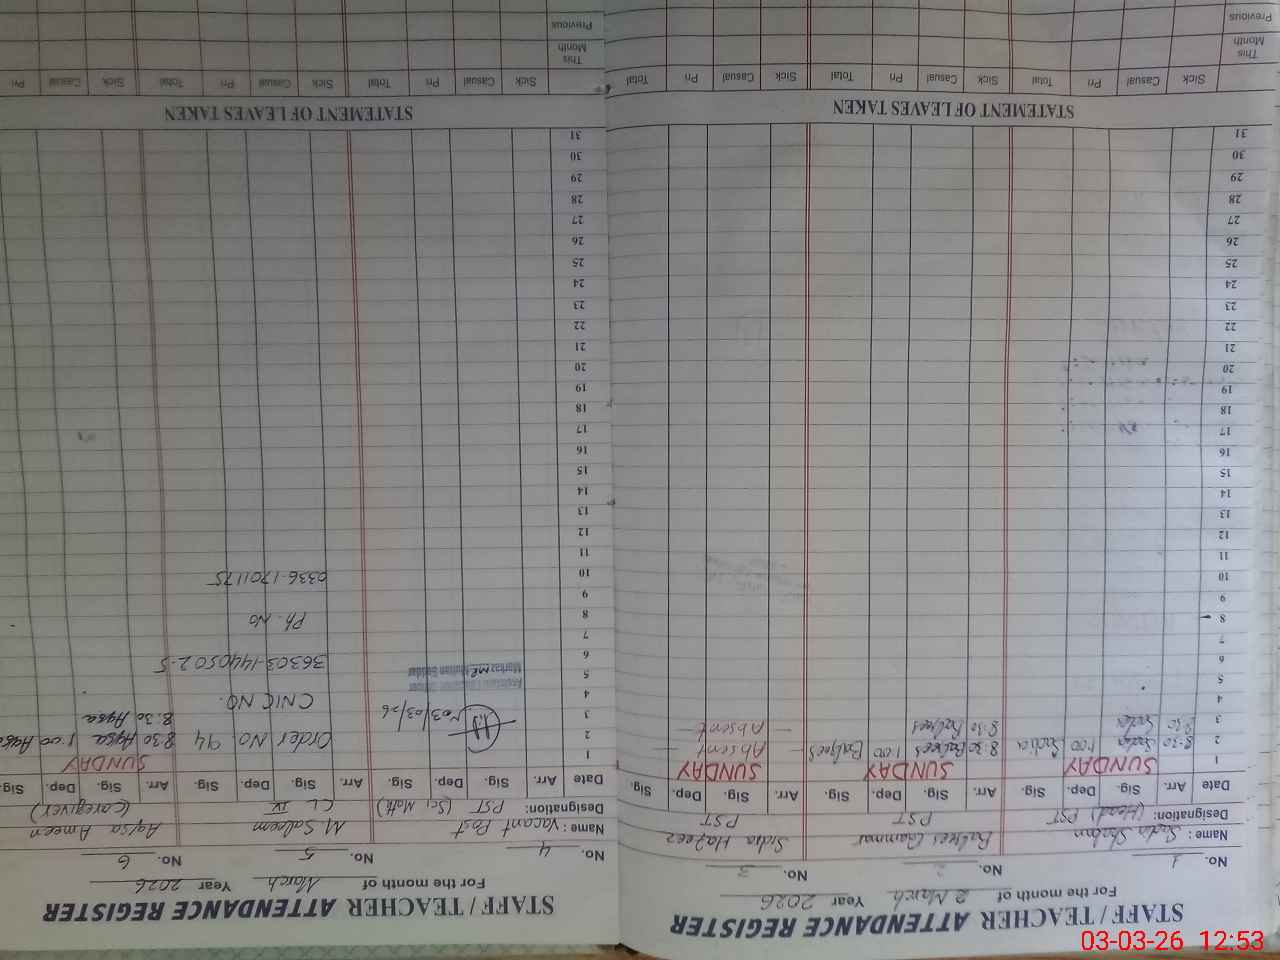 STAFF / TEACHER ATTENDANCE REGISTER
For the month of March Year 2026
No. 1 No. 2 No. 3
Name: Sadia Shabnm Balqees Hafeez
Designation: (Head) PST PST PST
Date Arr. Sig. Dep. Sig. Arr. Sig. Dep. Sig. Arr. Sig. Dep. Sig.
1 SUNDAY SUNDAY SUNDAY
2 8:30 Sadia 1:00 Sadia 8:30 Balqees 1:00 Balqees — Absent —
3 8:30 Sadia 8:30 Balqees — Absent —
4
5
6
7
8
9
10
11
12
13
14
15
16
17
18
19
20
21
22
23
24
25
26
27
28
29
30
31
STATEMENT OF LEAVES TAKEN
Sick Casual Pri Total Sick Casual Pri Total Sick Casual Pri Total
This Month
Previous
STAFF / TEACHER ATTENDANCE REGISTER
For the month of March Year 2026
No. 4 No. 5 No. 6
Name: Vacant Post M Saleem Aqsa Ameen
Designation: PST (Sci Math) CL IV (Caregiver)
Date Arr. Sig. Dep. Sig. Arr. Sig. Dep. Sig. Arr. Sig. Dep. Sig.
1 SUNDAY
2 Order No. 94 8:30 Aqsa 1:00 Aqsa
3 03/03/26 8:30 Aqsa
4 CNIC NO.
5
6 36303-1440502-5
7
8 Ph. NO
9
10 0336-1701175
11
12
13
14
15
16
17
18
19
20
21
22
23
24
25
26
27
28
29
30
31
STATEMENT OF LEAVES TAKEN
Sick Casual Pri Total Sick Casual Pri Total Sick Casual Pri
This Month
Previous
03-03-26 12:53